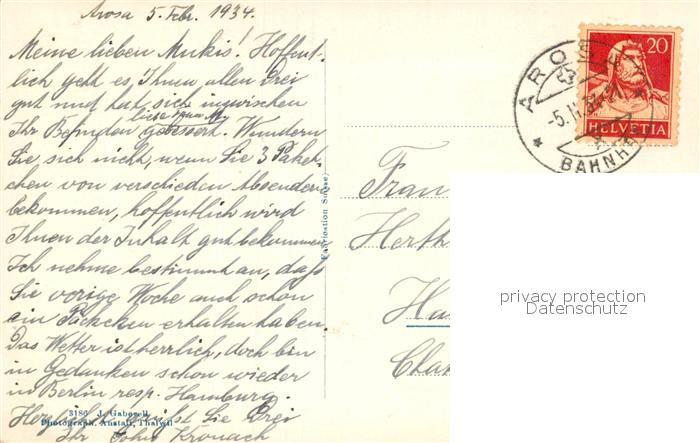 Arosa 5. Febr. 1934.
Meine lieben Mukis! Hoffent-
lich geht es Ihnen allen drei
gut und hat sich inzwischen
liebe
Ihr Befinden gebessert. Wundern
Sie sich nicht, wenn Sie 3 Paket-
chen von verschieden Absendern
bekommen, hoffentlich wird
Ihnen der Inhalt gut bekommen.
Ich nehme bestimmt an, daß
Sie vorige Woche auch schon
ein Päckchen erhalten haben.
Das Wetter ist herrlich, doch bin
in Gedanken schon wieder
in Berlin resp. Hamburg.
Herzlichst grüßt Sie Drei
Ihr John Kronach
3180 J. Gaberell
Photograph. Anstalt, Thalwil
Fabrication Suisse
20
HELVETIA
AROSA
-5. II. 34
BAHNH
Frau
Herth
Ha
privacy protection
Datenschutz